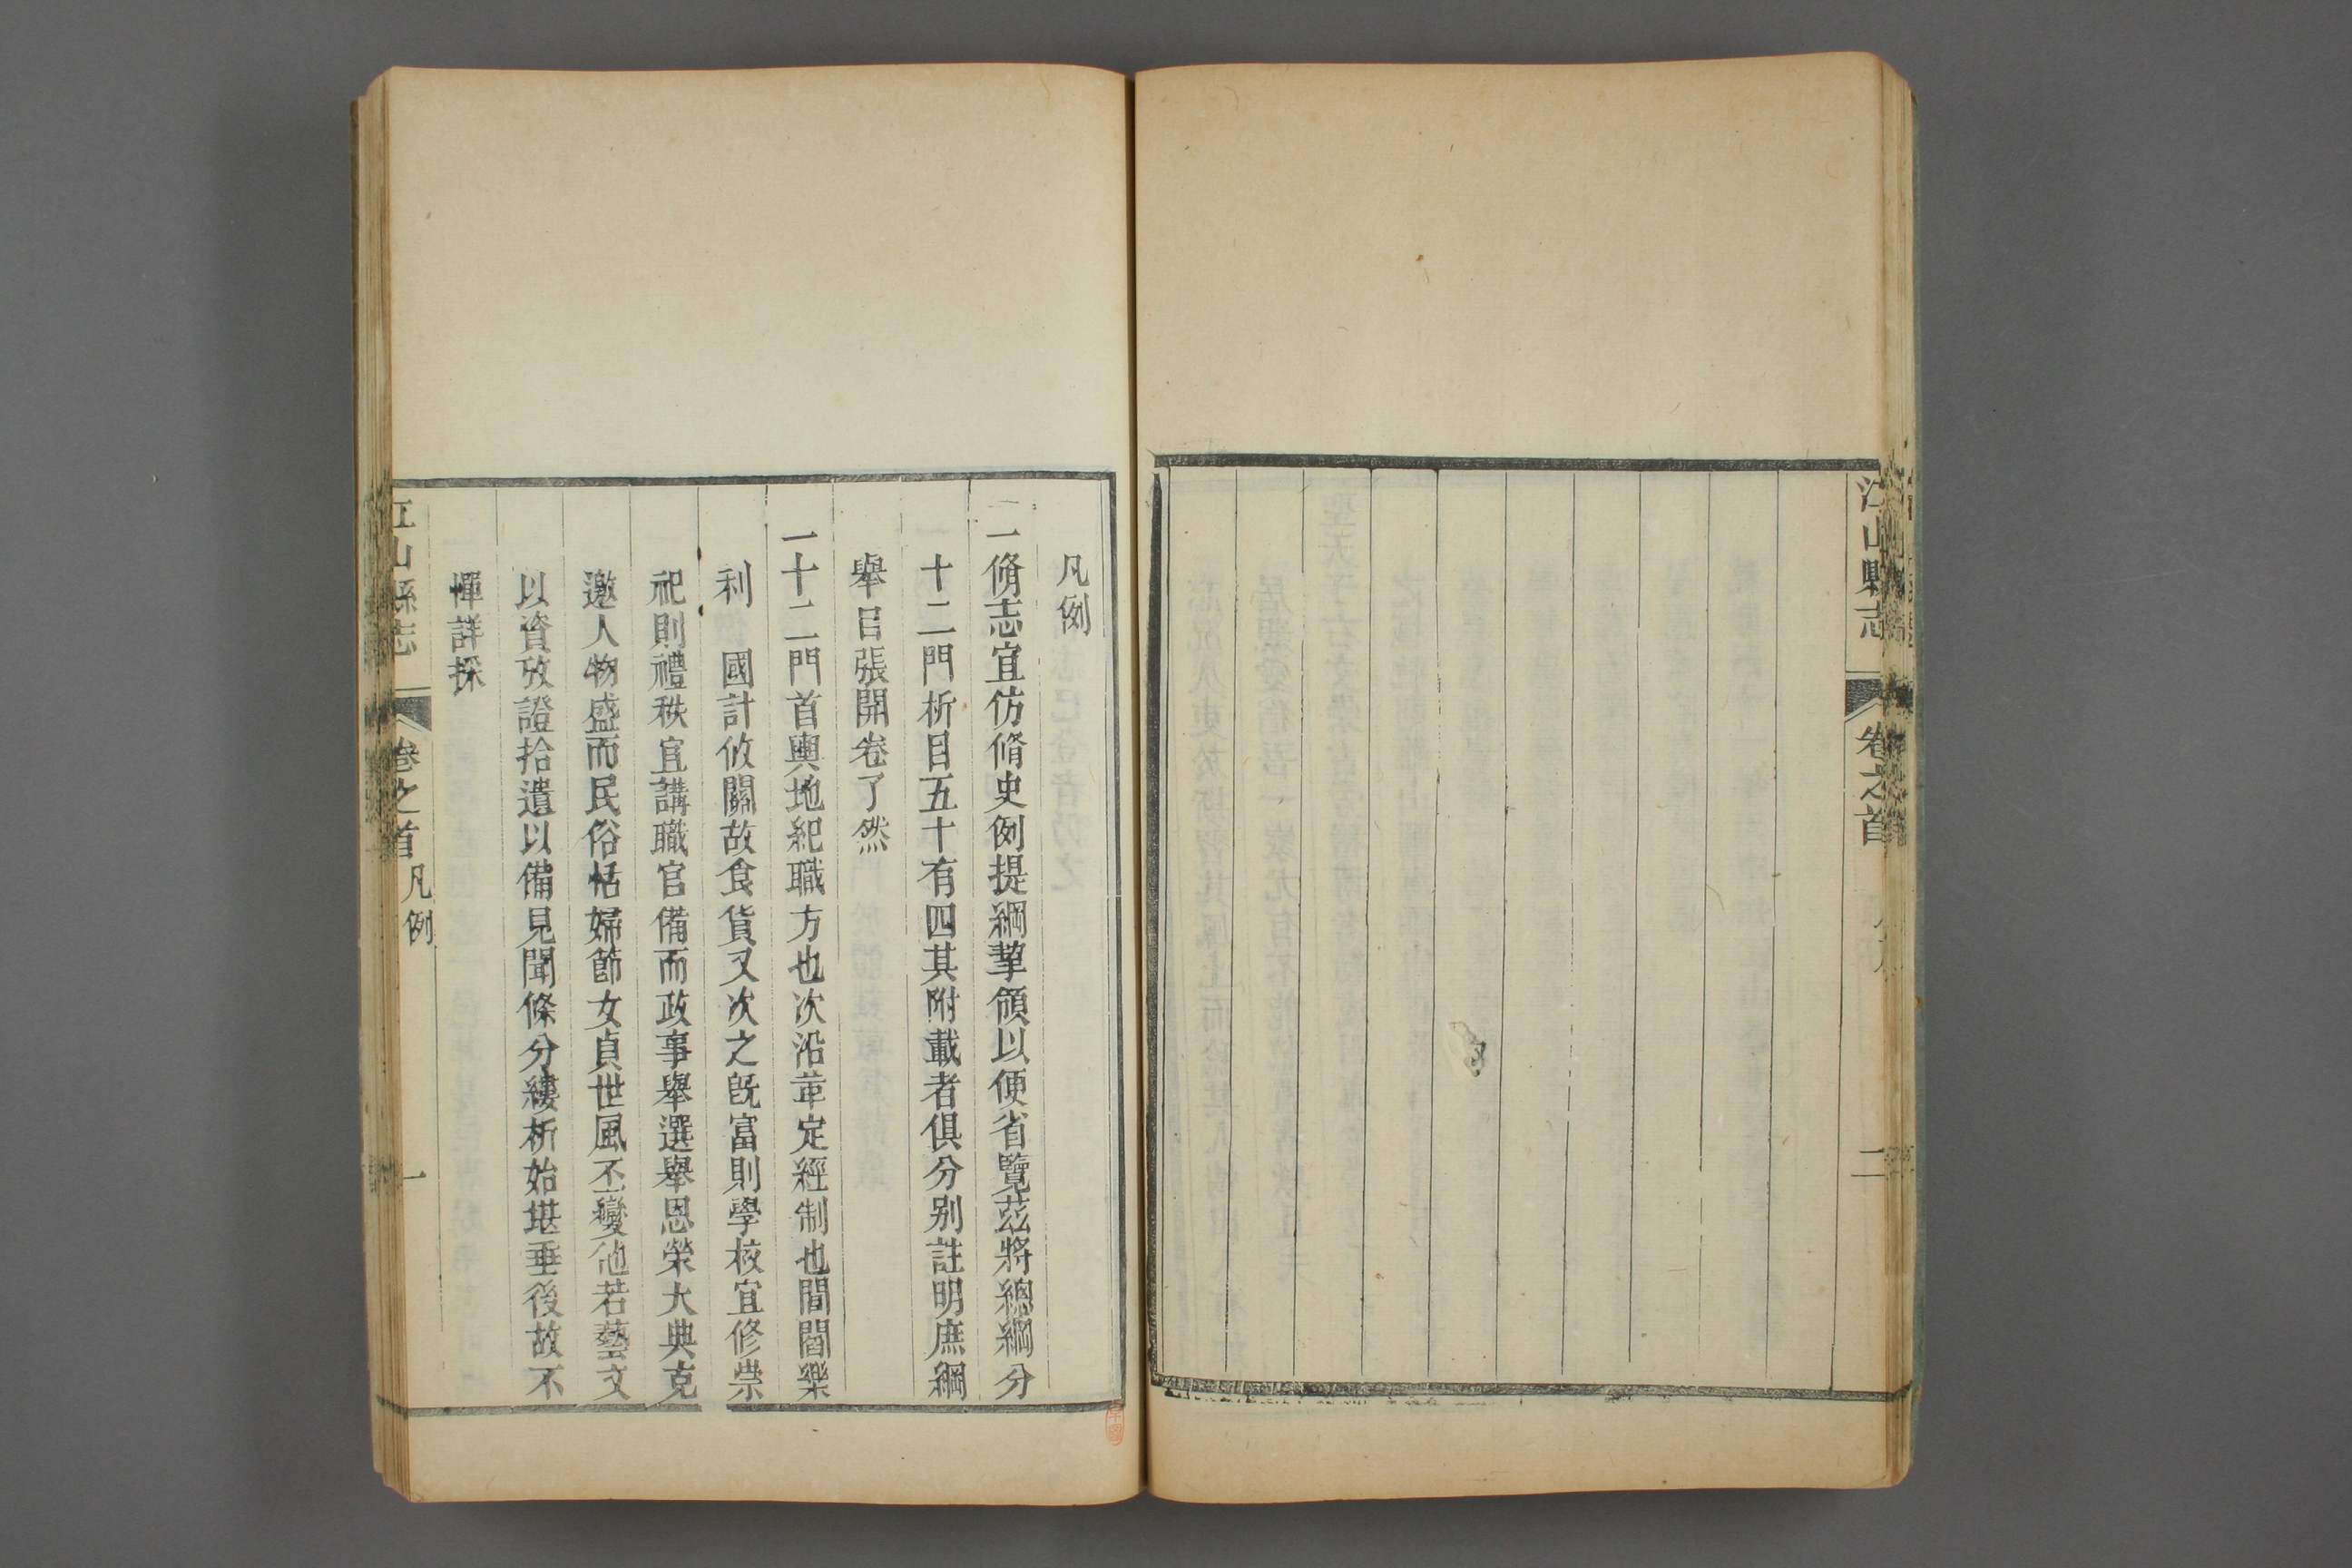 江山縣志
卷之首
二
凡例
一脩志宜仿脩史例提綱挈領以便省覽茲將總綱分
十二門析目五十有四其附載者俱分别註明庶綱
舉目張開卷了然
一十二門首輿地紀職方也次沿革定經制也閭閻樂
利　國計攸關故食貨又次之旣富則學校宜修崇
祀則禮秩宜講職官備而政事舉選舉恩榮大典克
邀人物盛而民俗恬婦節女貞世風丕變他若藝文
以資攷證拾遺以備見聞條分縷析始堪垂後故不
憚詳採
江山縣志
卷之首
凡例
一